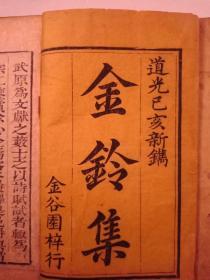 道光己亥新鐫
金鈴集
金谷園梓行
武原爲文獻之藪士之以詩賦試者輒爲